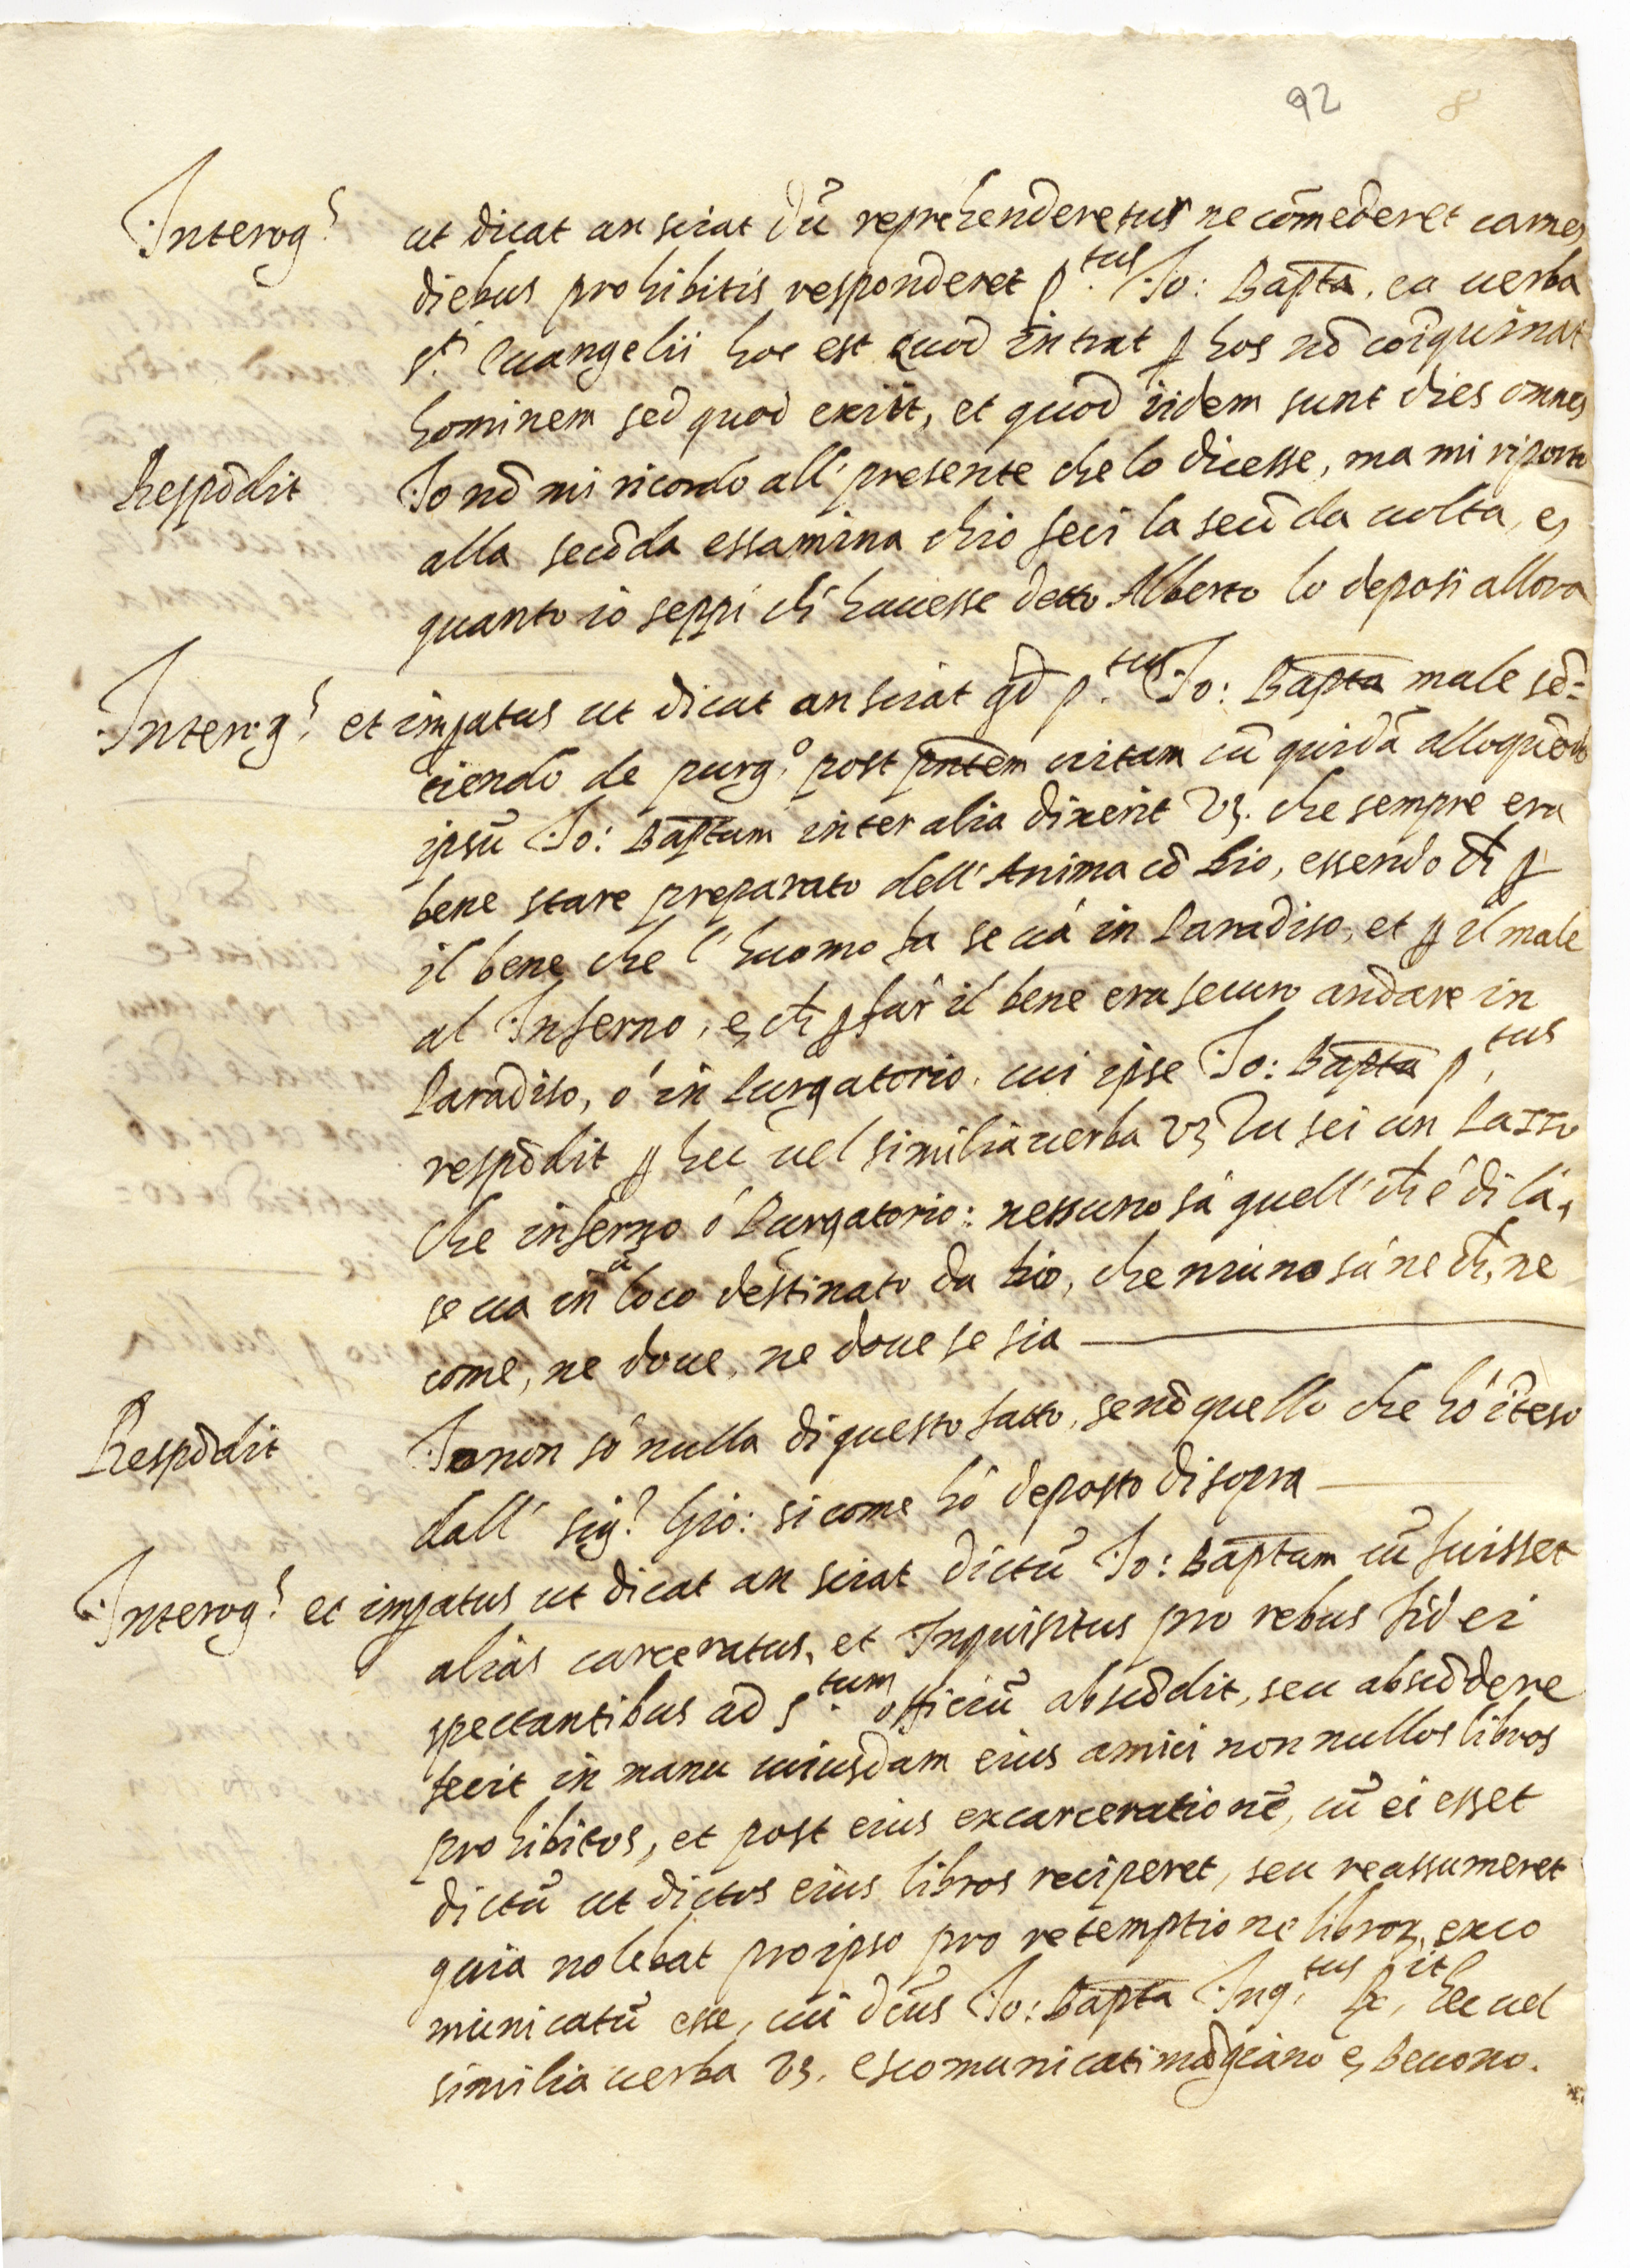 92 8
Interog.s ut dicat an sciat dū reprehenderetur ne cōmederet carnes
diebus prohibitis responderet p.tus Io: Bapta. ea uerba
s.ti Euangelii hoc est quod intrat p hos nō coīquinat
hominem sed quod exiit, et quod iidem sunt dies omnes
Respōdit Io nō mi ricordo all' presente che lo dicesse, ma mi riporto
alla secōda essamina ch'io feci la secōda uolta, e,
quanto io seppi ch' hauesse detto Alberto lo deposi allora
Interog.s et impatus ut dicat an sciat qd p.tus Io: Bapta male sē=
tiendo de purg.o post pntem uitam cū quidā alloquēdo
ipsū Io: Baptam inter alia dixerit vz. che sempre era
bene stare preparato dell' Anima cō Dio, essendo ch p
il bene che l' huomo fa se uà in Paradiso, et p il male
al Inferno, e, ch p far il bene era securo andare in
Paradiso, ó in Purgatorio. cui ipse Io: Bapta p.tus
respōdit p hec uel similia uerba vz Tu sei un Pazzo
che inferno ó Purgatorio: nessuno sà quell' ch é di là,
se ua in u loco destinato da Dio, che niuno sà ne ch, ne
come, ne doue, ne doue se sia
Respōdit Io non sò nulla di questo fatto, se nō quello che hò īteso
dall' sig.r Gio: si come hò deposto di sopra
Interog.s et impatus ut dicat an sciat dictū Io: Baptam cū fuisset
alias carceratus, et Inquisitus pro rebus fidei
spectantibus ad s.tum officiū abscōdit, seu abscōdere
fecit in manu cuiusdam eius amici non nullos libros
prohibitos, et post eius excarcerationē, cū ei esset
dictū ut dictos eius libros reciperet, seu reassumeret
quia nolebat pro ipso pro retemptione libroꝝ exco
municatū esse, cui dcūs Io: Bapta Inq.tus Rx.it hec uel
similia uerba vz. escomunicati mōgiano e, beuono.